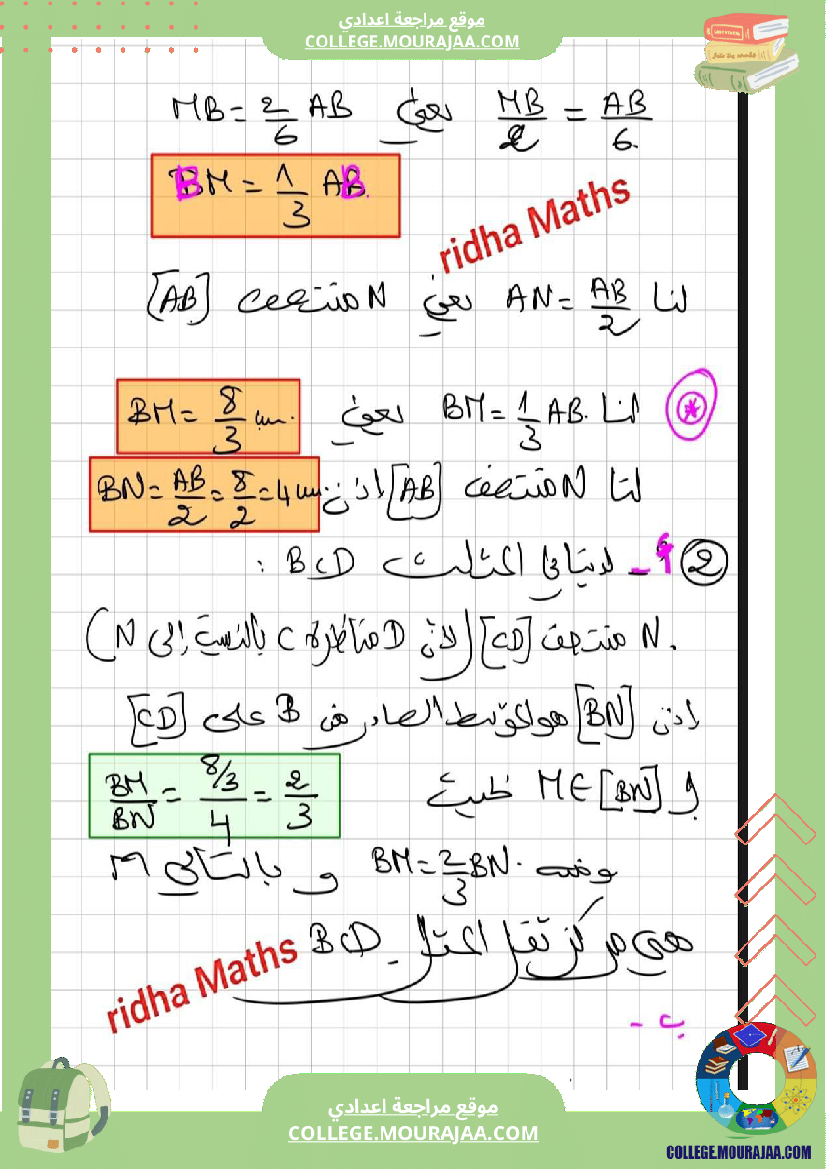 موقع مراجعة اعدادي
COLLEGE.MOURAJAA.COM
MB/2 = AB/6 يعني MB = 2/6 AB
BM = 1/3 AB.
ridha Maths
لنا AN = AB/2 يعني N منتصف [AB]
لنا BM = 1/3 AB. يعني BM = 8/3 cm.
لنا N منتصف [AB] اذن BN = AB/2 = 8/2 = 4cm
2 أ- لدينا في المثلث BCD :
. N منتصف [CD] (لأن D مناظرة C بالنسبة إلى N)
اذن [BN] هو الموسط الصادر من B على [CD]
و M∈[BN] حيث BM/BN = 8/3/4 = 2/3
ومنه BM = 2/3 BN. و بالتالي M
هي مركز ثقل المثلث BCD
ridha Maths
ب -
موقع مراجعة اعدادي
COLLEGE.MOURAJAA.COM
COLLEGE.MOURAJAA.COM